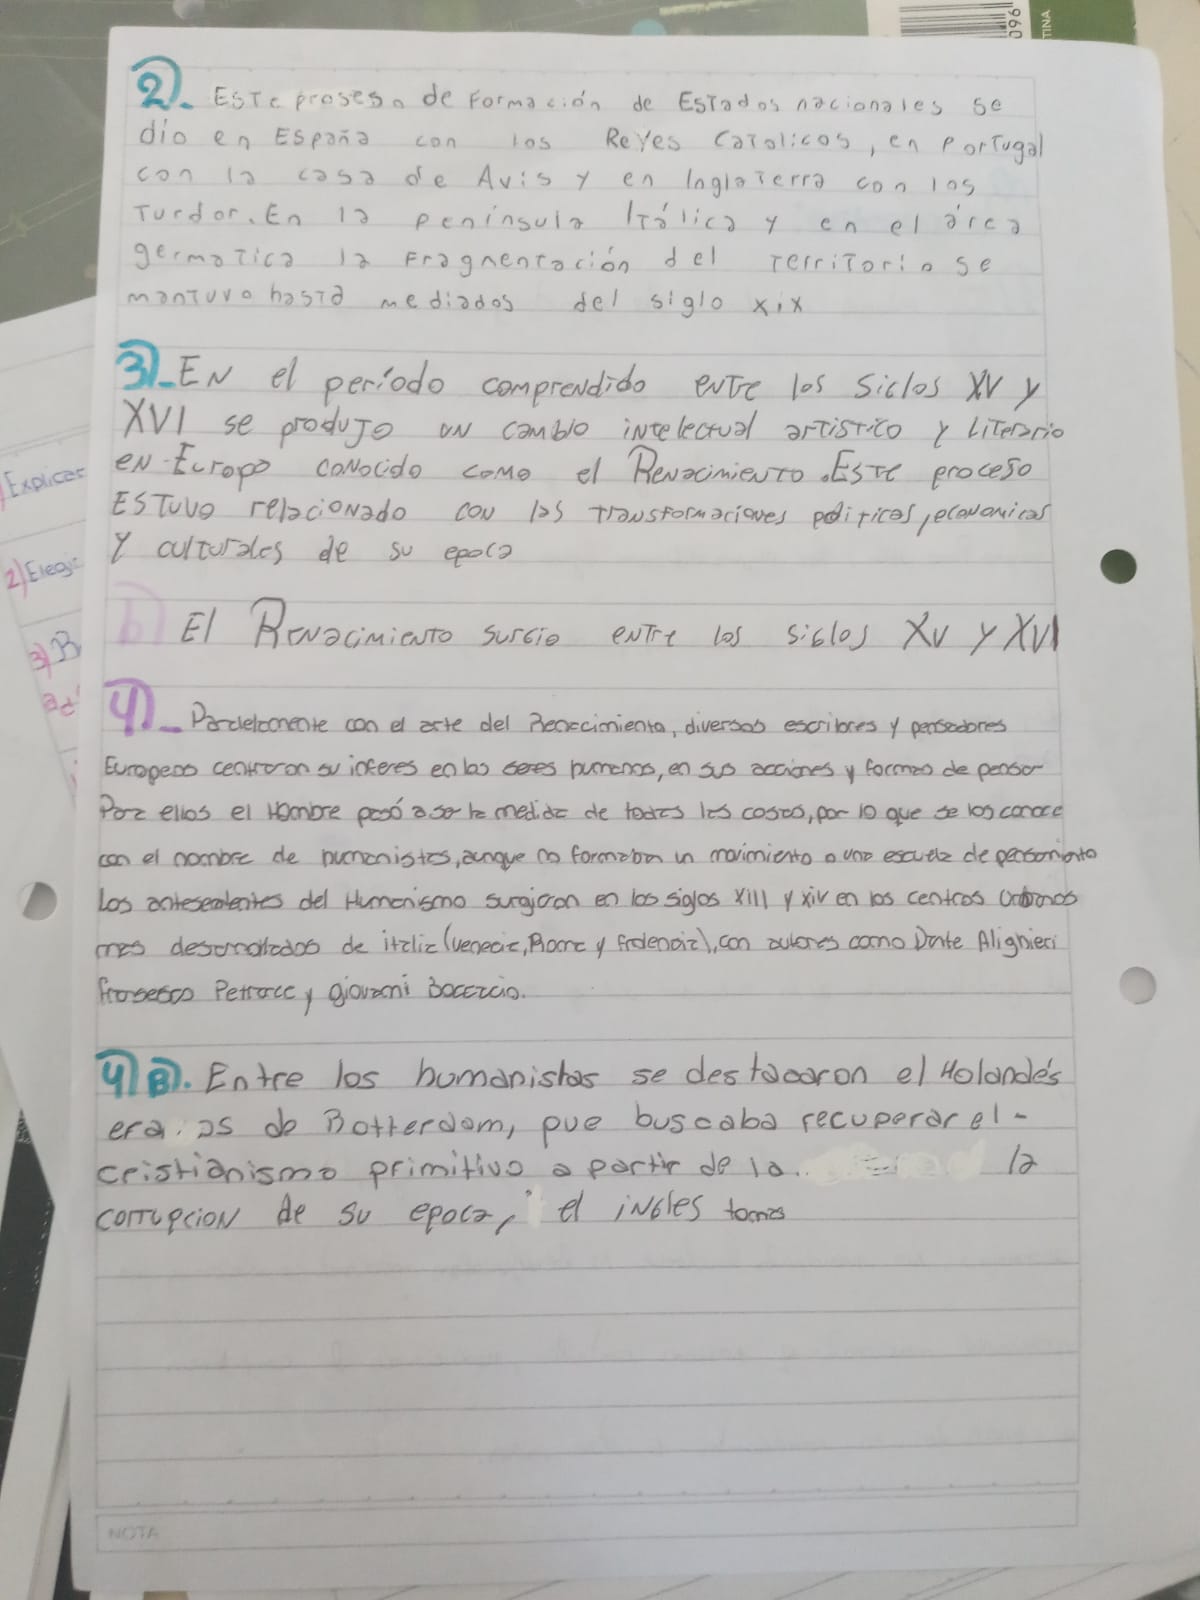 096
TINA
2). Este proseso de Formación de Estados nacionales se
dio en España con los Reyes Catolicos, en Portugal
con la casa de Avis y en Inglaterra con los
Turdor. En la península Itálica y en el área
germatica la Fragmentación del Territorio se
mantuvo hasta mediados del siglo xix
3)_ EN el período comprendido entre los Siglos XV y
XVI se produjo un cambio intelectual artistico y Literario
en Europa conocido como el Renacimiento. Este proceso
Estuvo relacionado con las transformaciones politicas, economicas
y culturales de su epoca
b) El Renacimiento surgio entre los siglos XV y XVI
4)_ Paralelamente con el arte del Renacimiento, diversos escribores y pensadores
Europeos centraron su interes en los seres humanos, en sus acciones y formas de pensar
Para ellos el Hombre pasó a ser la medida de todas las cosas, por lo que se los conoce
con el nombre de humanistas, aunque no formaban un movimiento o una escuela de pensamiento
Los antesedentes del Humanismo surgieron en los siglos XIII y XIV en los centros Urbanos
mas desarrollados de italia (venecia, Roma y Frolencia), con autores como Dante Alighieri
Fransesco Petrarca y giovanni Bocaccio.
4) B). Entre los humanistas se destacaron el Holandés
era as de Rotterdam, que buscaba recuperar el -
cristianismo primitivo a partir de la.. la
corrupcion de su epoca, el ingles tomas
NOTA
Explicar
2) Elegir
3)